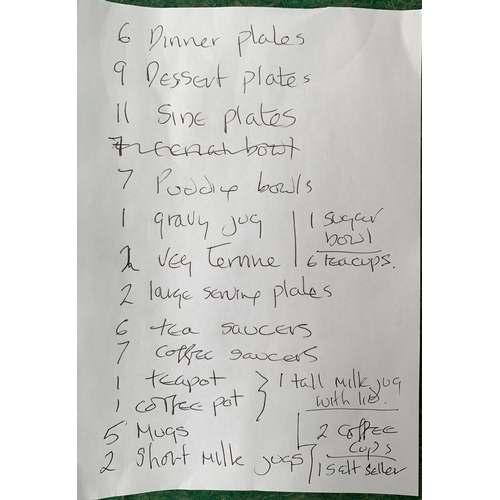 6 Dinner plates
9 Dessert plates
11 Side plates
7 cereal bowl
7 Pudding bowls
1 gravy jug
1 sugar bowl
2 veg Terrine
6 teacups.
2 large serving plates
6 tea saucers
7 coffee saucers
1 teapot
1 coffee pot
1 tall milk jug with lid.
5 Mugs
2 short milk jugs
2 coffee cups
1 salt seller